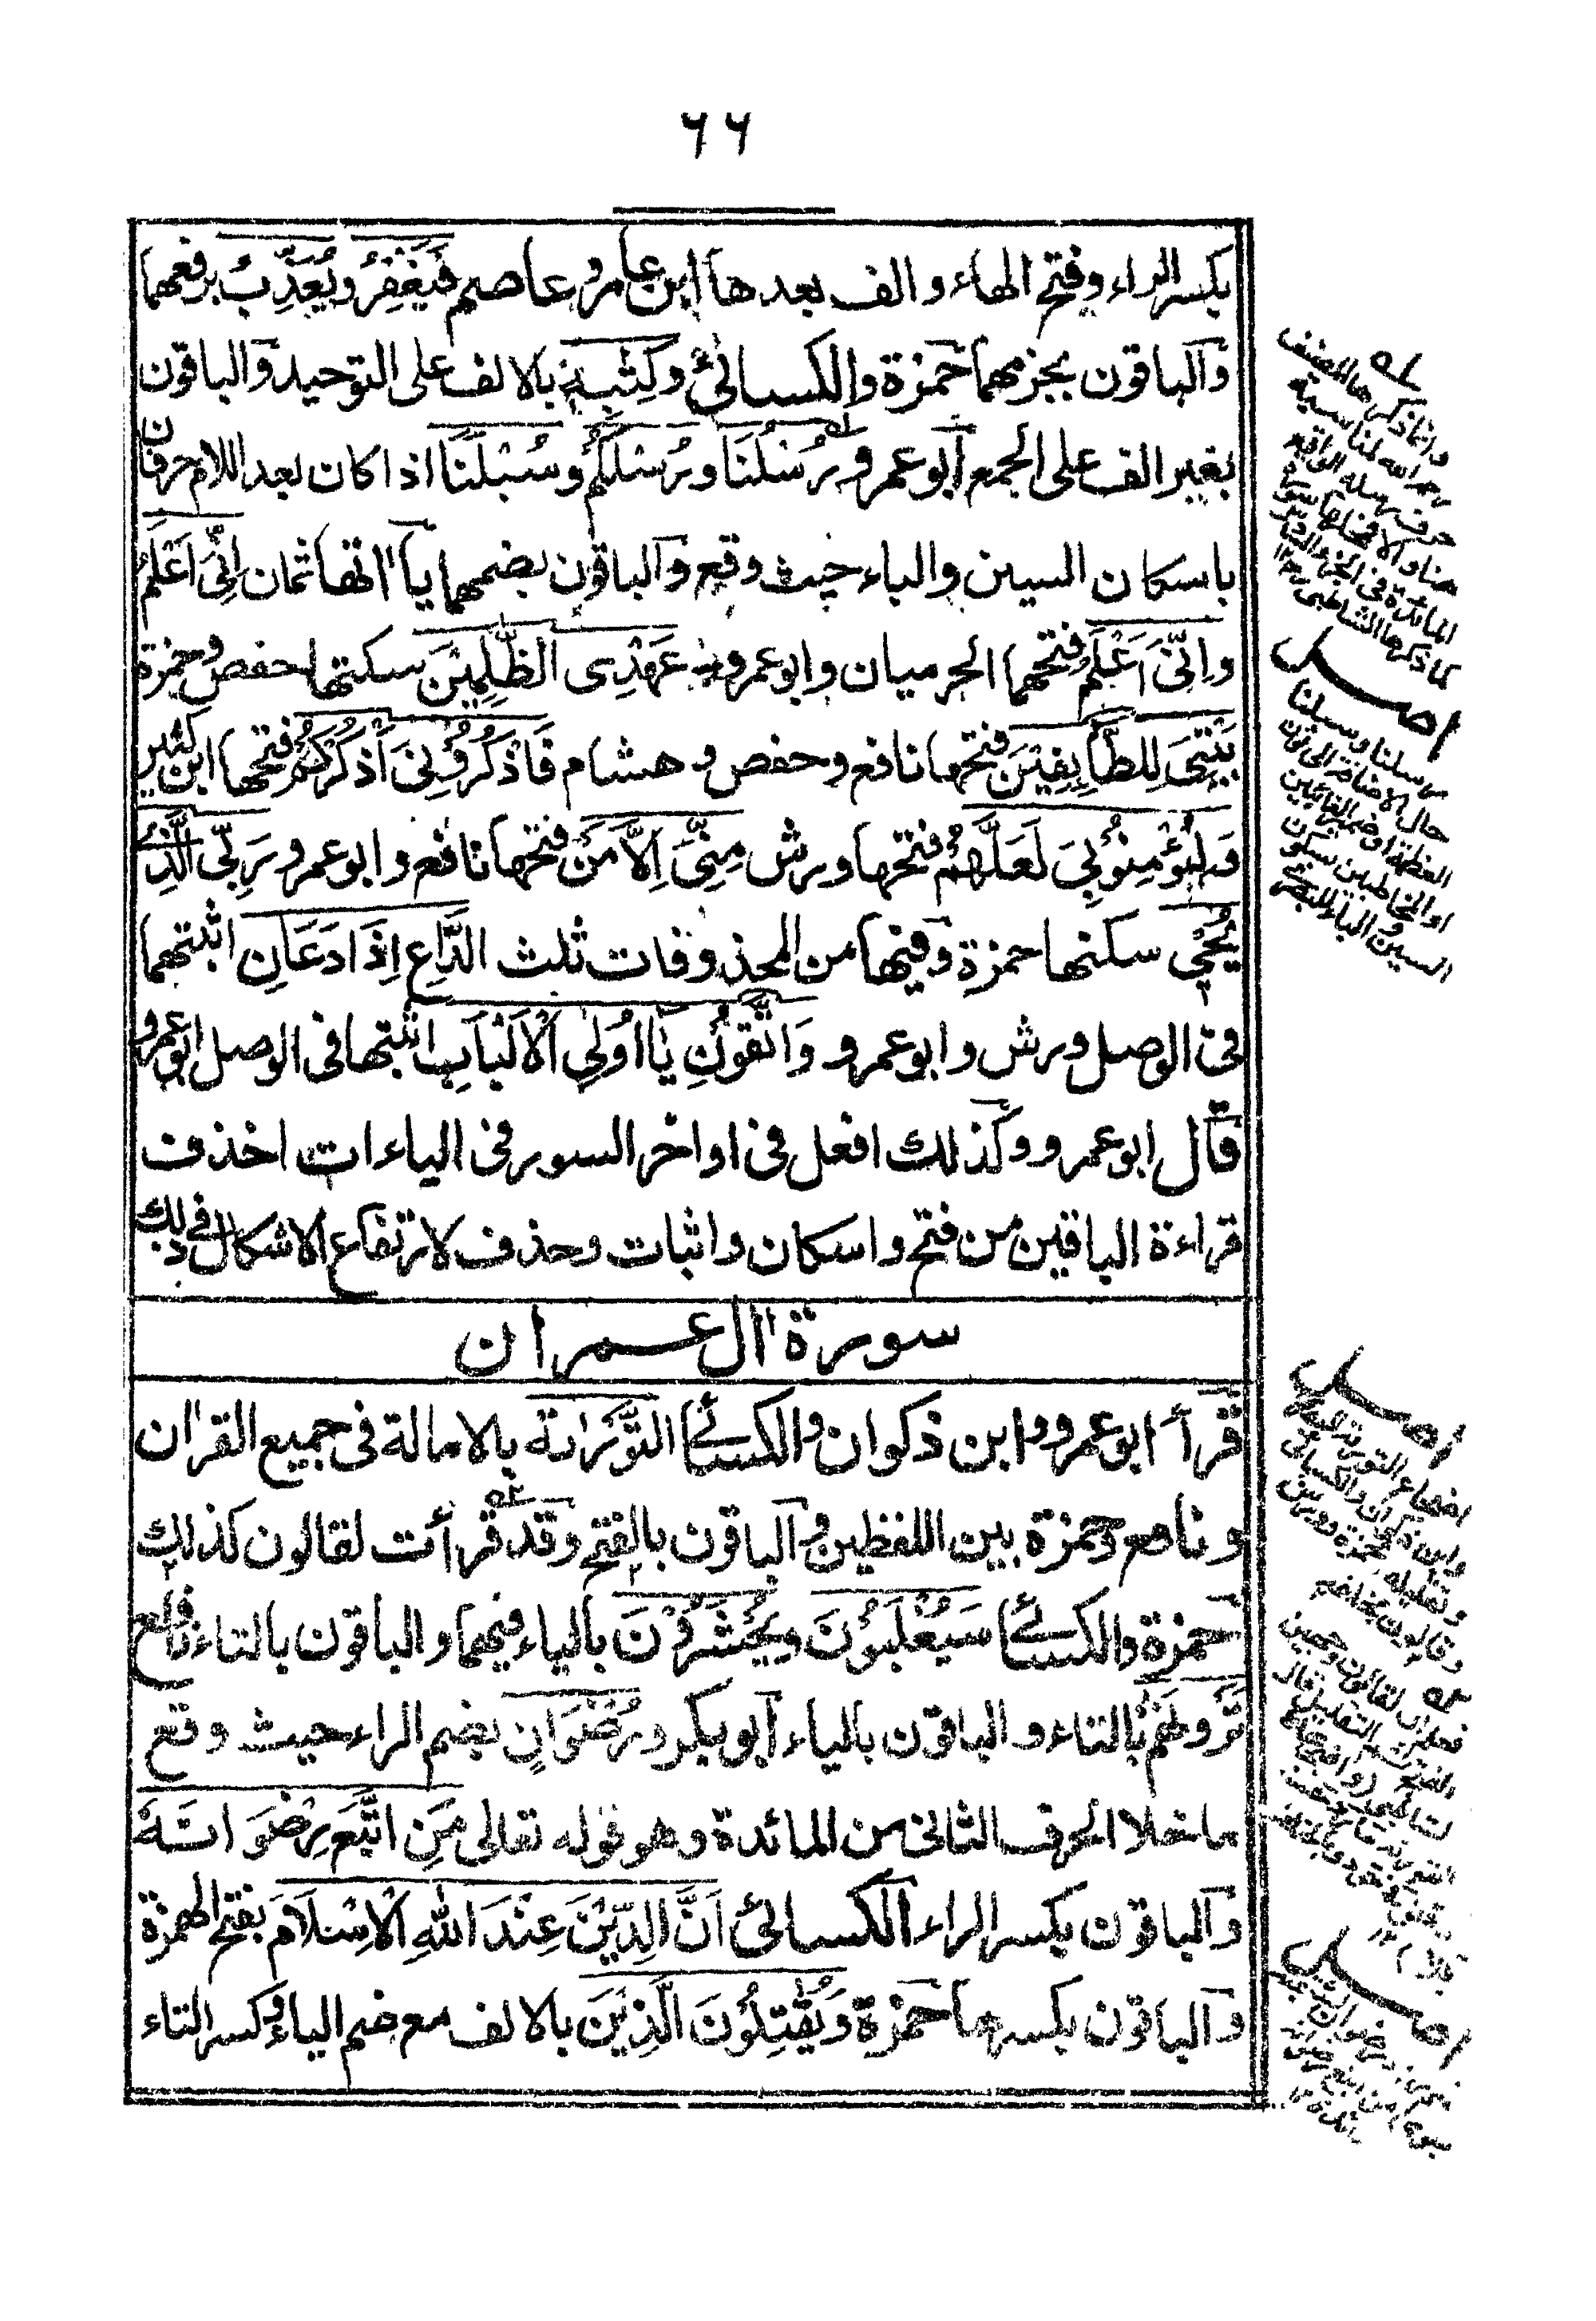 ٦٦
بكسر الراء وفتح الهاء والف بعدها ابن عامر وعاصم فَيَغْفِرُ ويُعَذِّبُ برفعهما
والباقون بجزمهما حمزة والكسائى وكتبه بالالف على التوحيد والباقون
بغير الف على الجمع ابو عمرو رُسْلُنَا ورُسْلُكُمْ وسُبْلَنَا اذا كان بعد اللام حرفان
باسكان السين والباء حيث وقع والباقون بضمهما يا اتها ثمان اِنِّىَ اَعْلَمُ
واِنِّىَ اَعْلَمُ فتحهما الحرميان وابو عمرو عَهْدِى الظّٰلِمِيْنَ سكتها حفص وحمزة
بَيْتِىَ لِلطَّآئِفِيْنَ فتحها نافع وحفص وهشام فَاذْكُرُوْنِىَ اَذْكُرْكُمْ فتحها ابن كثير
وَلْيُؤْمِنُوْبِىَ لَعَلَّهُمْ فتحها ورش مِنِّىَ اِلَّا مَنْ فتحها نافع وابو عمرو رَبِّىَ الَّذِىْ
يُحْيٖ سكنها حمزة وفيها من المحذوفات ثلث الدَّاعِ اِذَا دَعَانِ اثبتهما
فى الوصل ورش وابو عمرو وَاتَّقُوْنِ يٰااُولِى الْاَلْبَابِ اثبتها فى الوصل ابو عمرو
قال ابو عمرو وكذلك افعل فى اواخر السور فى الياءات احذف
قراءة الباقين من فتح واسكان واثبات وحذف لارتفاع الاشكال فى ذلك
سورة اٰل عمران
قرأ ابو عمرو وابن ذكوان والكسائى التَّوْرٰىةَ بالامالة فى جميع القراٰن
ونافع وحمزة بين اللفظين والباقون بالفتح وقد قرأت لقالون كذلك
حمزة والكسائى سَيُغْلَبُوْنَ ويُحْشَرُوْنَ بالياء فيهما والباقون بالتاء نافع
تَرَوْنَهُمْ بالتاء والباقون بالياء ابو بكر ورُضْوَانٍ بضم الراء حيث وقع
ما خلا الحرف الثانى من المائدة وهو قوله تعالى مَنِ اتَّبَعَ رِضْوَانَهٗ
والباقون بكسر الراء الكسائى اَنَّ الدِّيْنَ عِنْدَ اللهِ الْاِسْلَامَ بفتح الهمزة
والباقون بكسرها حمزة وَيُقٰتِلُوْنَ الَّذِيْنَ بالالف مع ضم الياء وكسر التاء
وانما ذكرها المصنف
كما ذكرها الشاطبى
اصل
رسلنا وسبلنا
حال الاضافة الى نون
العظمة او ضمير الغائبين
او المخاطبين بسكون
السين والباء للبصرى
اصل
اضجاع التورٰىة
وابن ذكوان والكسائى
وتقليله لحمزة وورش
وقالون بخلفه
اصل